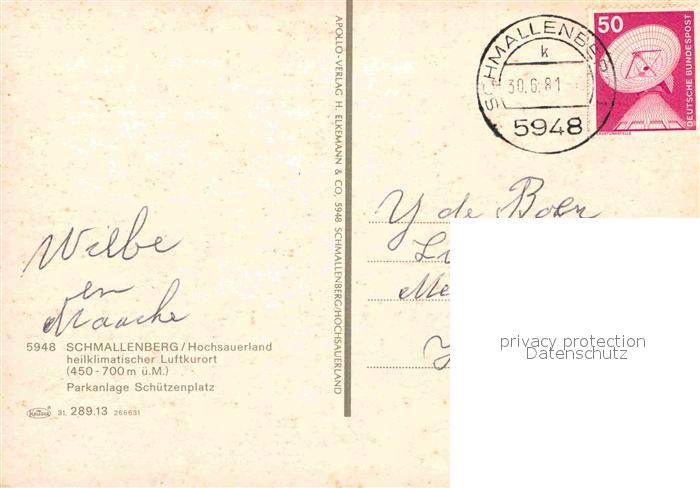 SCHMALLENBERG 1
k
30.6.81
5948
50
DEUTSCHE BUNDESPOST
ERDEFUNKSTELLE
APOLLO-VERLAG H. ELKEMANN & CO, 5948 SCHMALLENBERG/HOCHSAUERLAND
Y de Boer
Wilbe
en
Maaike
5948 SCHMALLENBERG / Hochsauerland
heilklimatischer Luftkurort
(450-700 m ü.M.)
Parkanlage Schützenplatz
31. 289.13 266631
privacy protection
Datenschutz